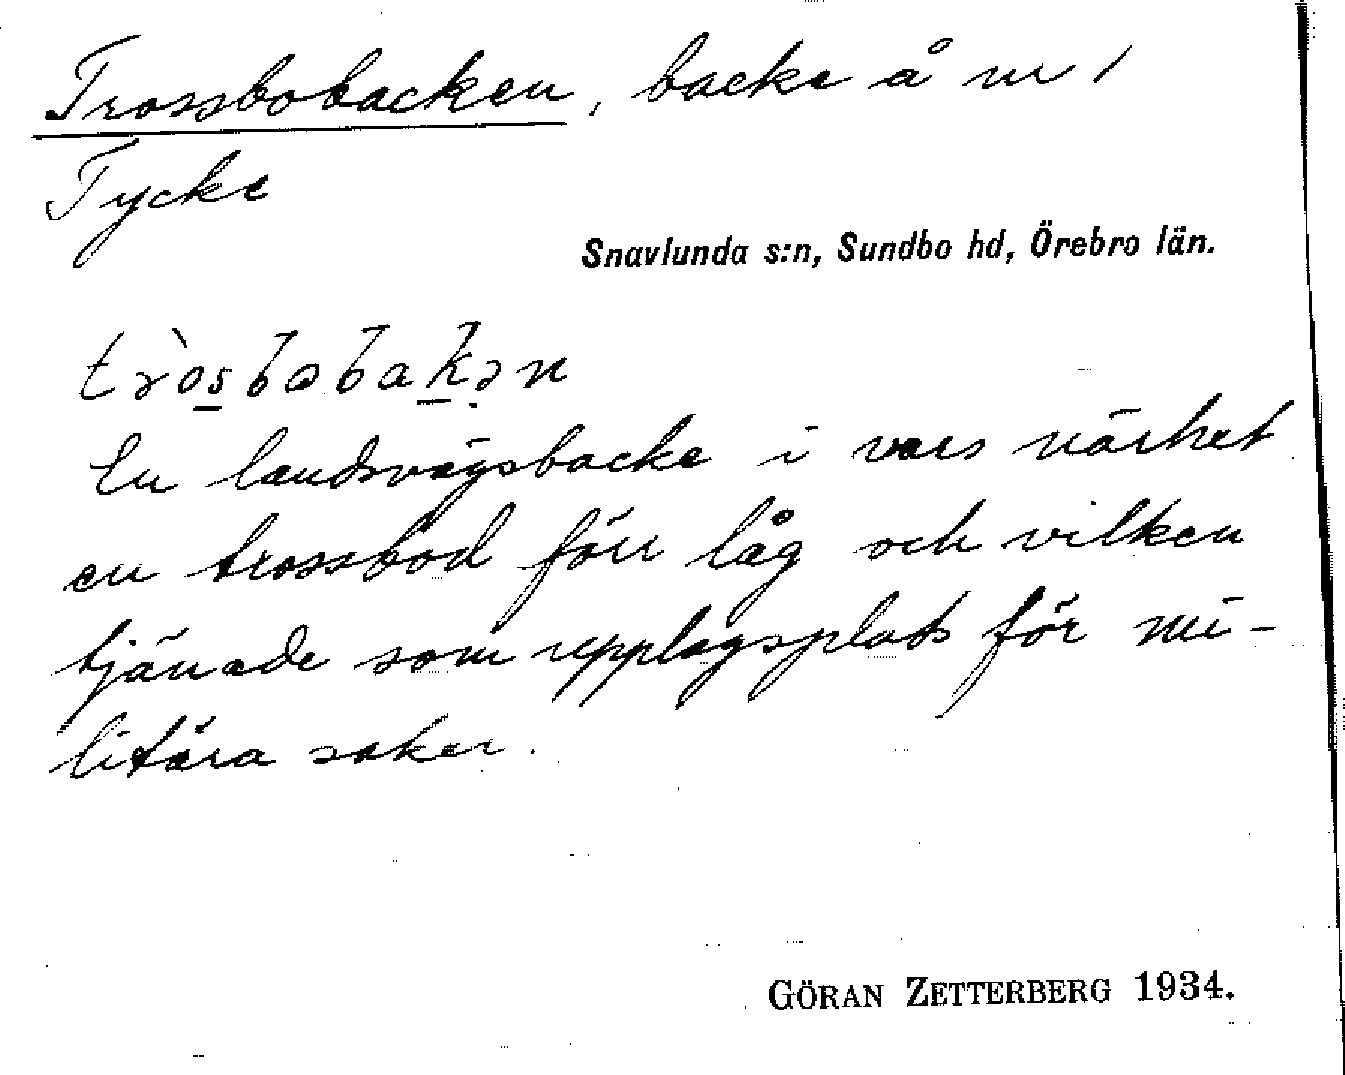 Trossbobacken, backe å nr 1
Tycke
Snavlunda s:n, Sundbo hd, Örebro län.
tròs̱bɷbaḵə̣n
En landsvägsbacke i vars närhet
en trossbod förr låg och vilken
tjänade som upplagsplats för mi-
litära saker.
GÖRAN ZETTERBERG 1934.